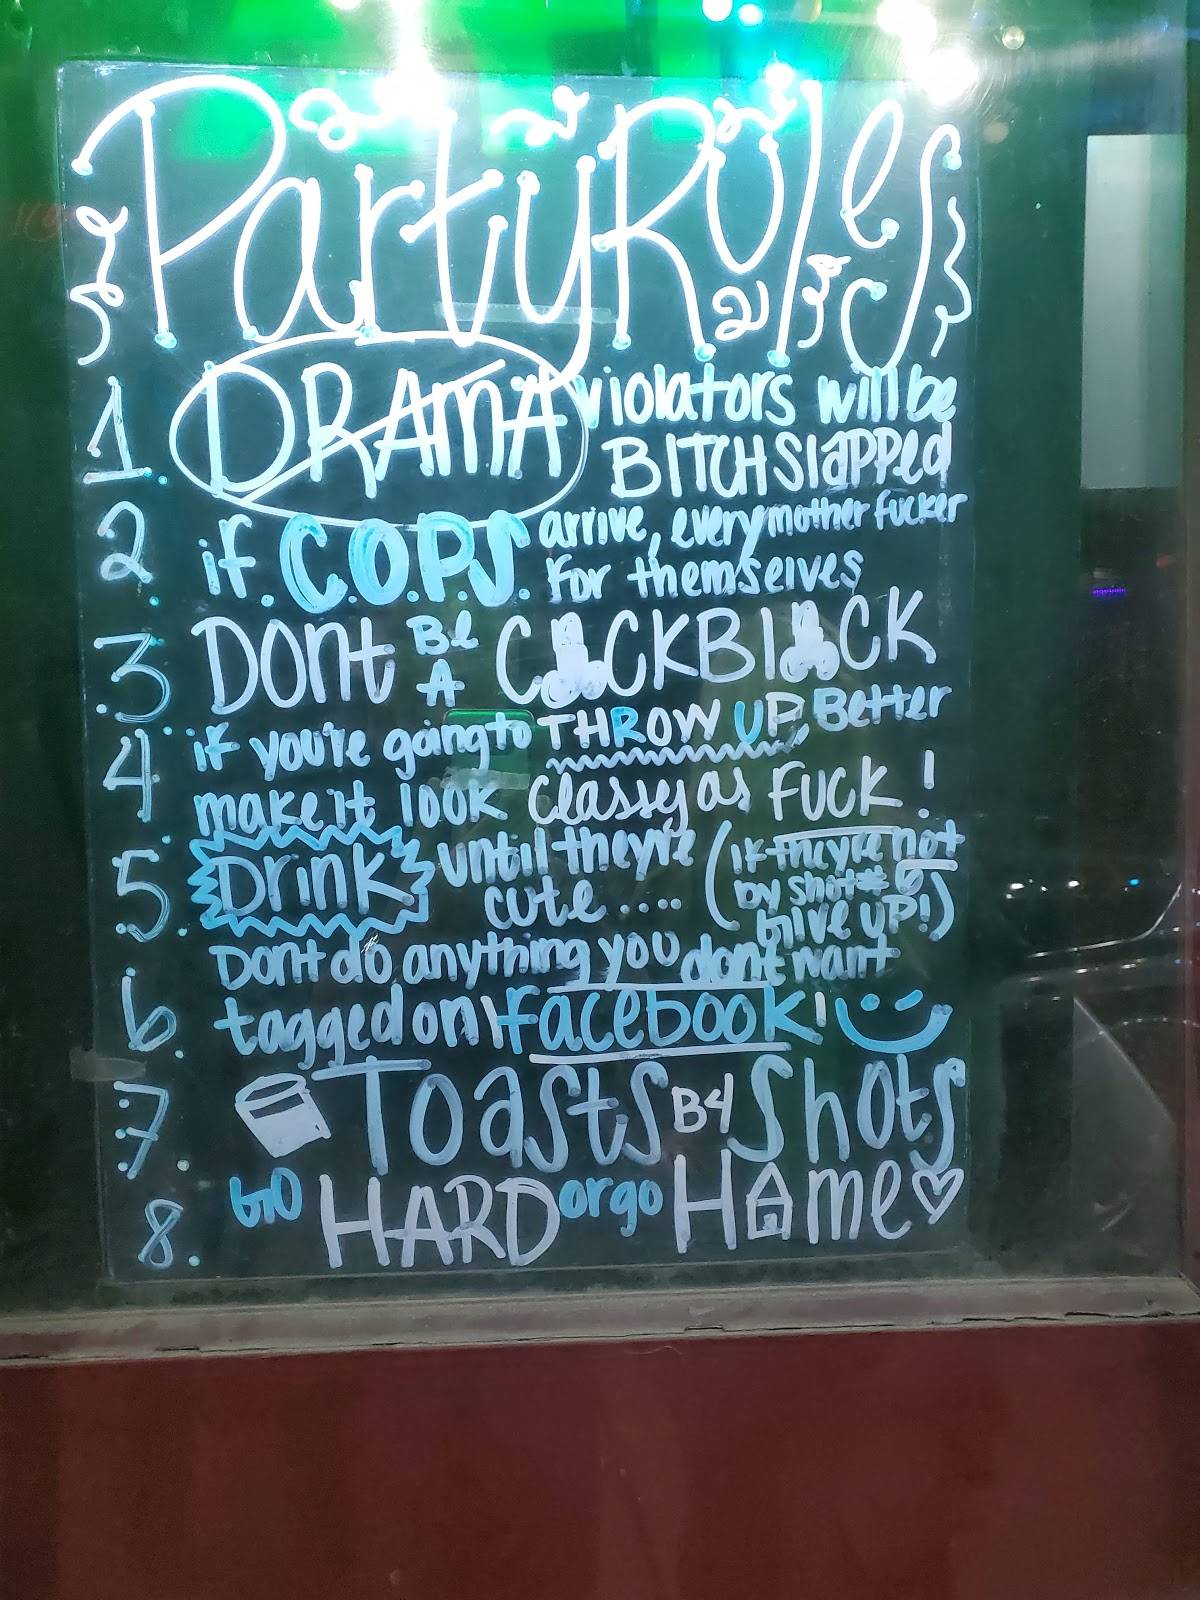 Party Rules
1. DRAMA violators will be
BITCHSlapped
2 if C.O.P.S. arrive, every mother fucker
for themselves
3. Dont BE A COCKBlOCK
4. if you're going to THROW UP, Better
make it look classy as FUCK!
5. Drink until they're (if they're not
cute.... by shot# 6
Give UP!)
6. Dont do anything you dont want
tagged on facebook!
7. Toasts B4 Shots
8. GO HARD or go Home